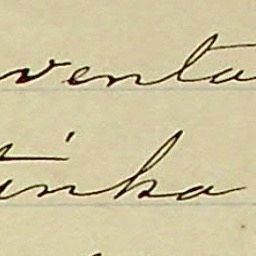 venta
tinka